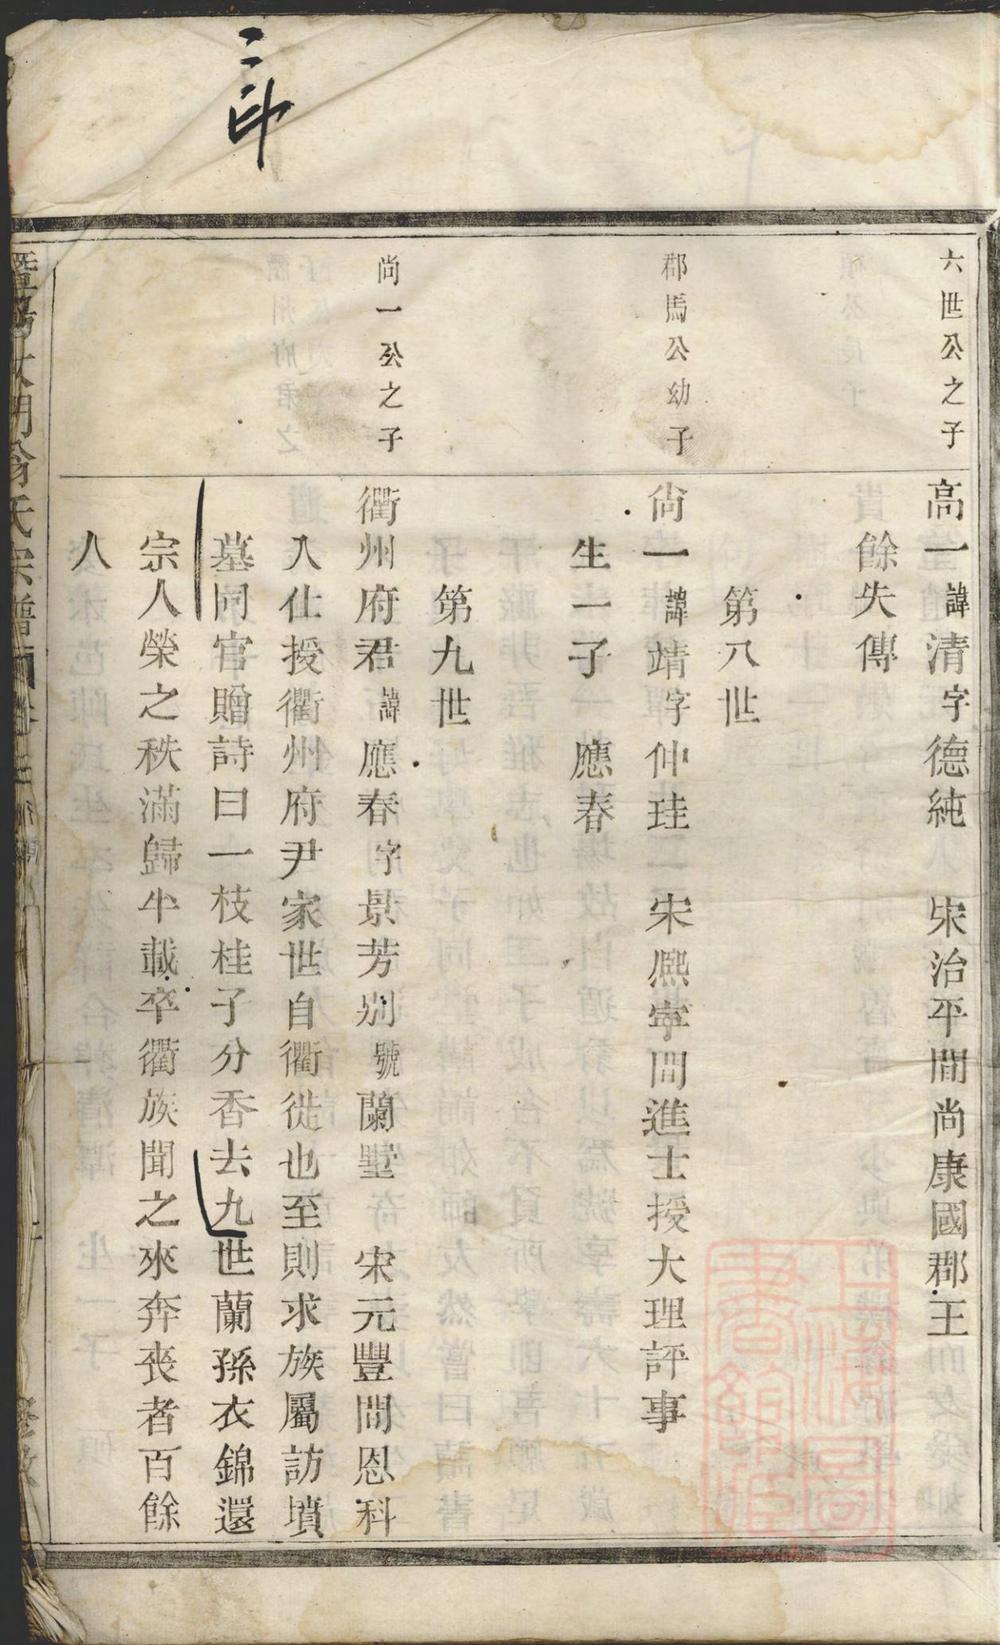 六世公之子
高一諱清字德純　宋治平間尚康國郡王
餘失傳
第八世
郡馬公幼子
尚一諱靖字仲珪　宋熈寧間進士授大理評事
生一子　應春
第九世
尚一公之子
衢州府君諱應春字景芳别號蘭墅　宋元豐間恩科
入仕授衢州府尹家世自衢徙也至則求族屬訪墳
墓同官贈詩曰一枝桂子分香去九世蘭孫衣錦還
宗人榮之秩滿歸半載卒衢族聞之來奔喪者百餘
人
氏宗譜